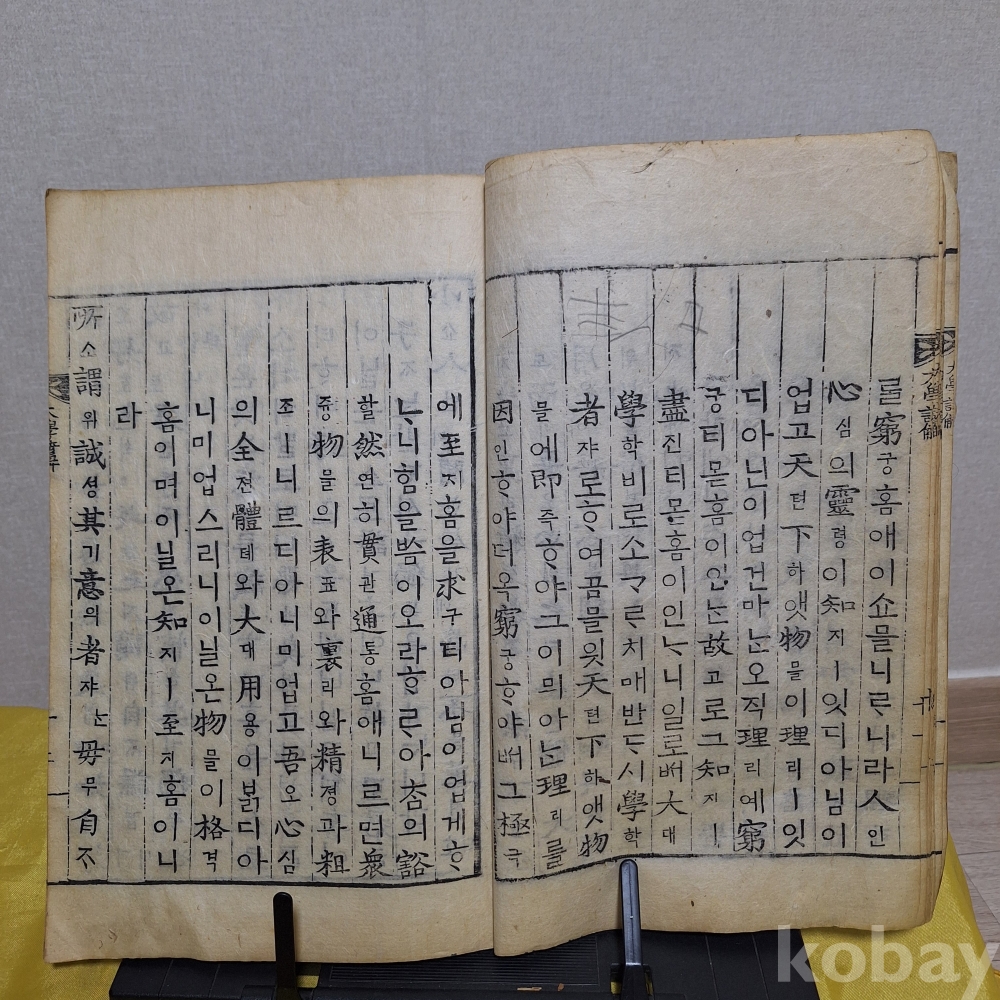 大學諺解
를窮궁홈애이쇼믈니ᄅᆞ니라人인
心심의靈령이知지ㅣ잇디아님이
업고天텬下하앳物믈이理리ㅣ잇
디아닌이업건마ᄂᆞᆫ오직理리예窮
궁티몯홈이인ᄂᆞᆫ故고로그知지ㅣ
盡진티몯홈이인ᄂᆞ니일로ᄡᅥ大대
學학비로소ᄀᆞᄅᆞ치매반ᄃᆞ시學학
者쟈로ᄒᆞ여곰믈읫天텬下하앳物
믈에即즉ᄒᆞ야그이믜아ᄂᆞᆫ理리를
因인ᄒᆞ야더옥窮궁ᄒᆞ야ᄡᅥ그極극
에至지홈을求구티아님이업게ᄒᆞ
ᄂᆞ니힘을ᄡᅳᆷ이오라ᄒᆞᄅᆞ아ᄎᆞᆷ의豁
활然연히貫관通통홈애니르면衆
즁物믈의表표와裏리와精졍과粗
조ㅣ니르디아니미업고吾오心심
의全젼體톄와大대用용이ᄇᆞᆰ디아
니미업스리니이닐온物믈이格격
홈이며이닐온知지ㅣ至지홈이니
라
所소謂위誠셩其기意의者쟈ᄂᆞᆫ毋무自ᄌᆞ
kobay